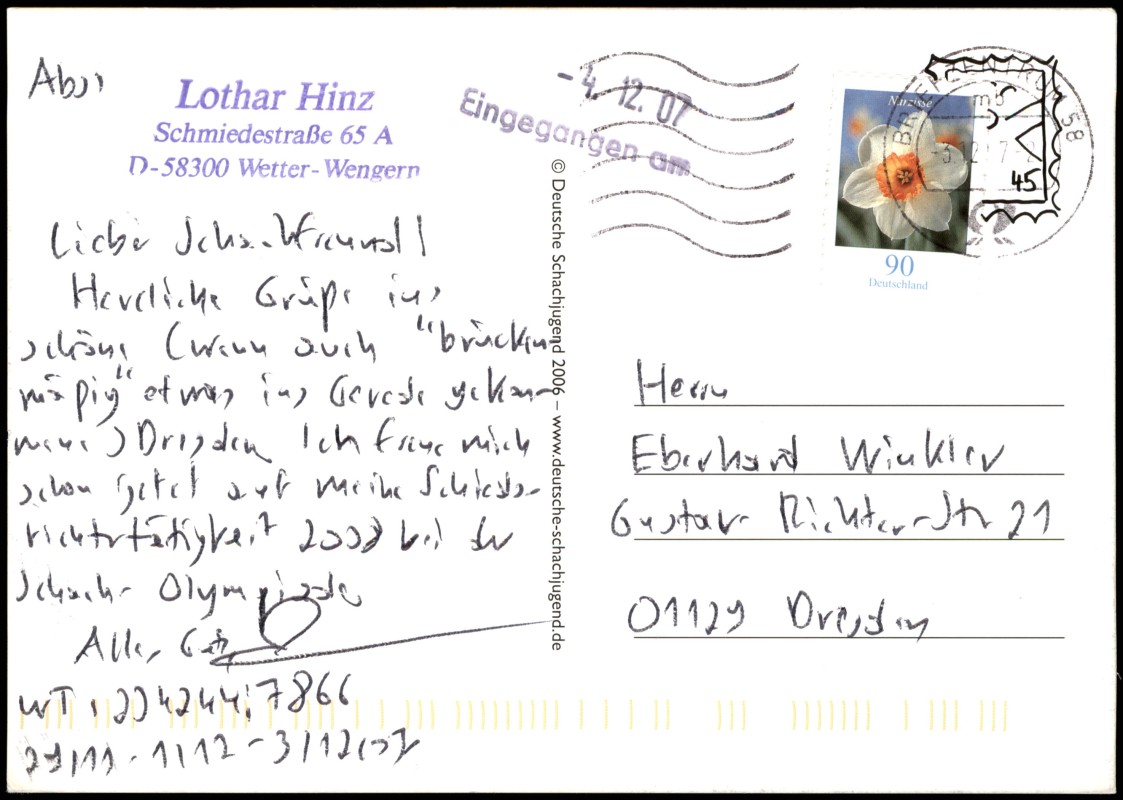 Abs:
Lothar Hinz
Schmiedestraße 65 A
D-58300 Wetter-Wengern
Lieber Schachfreund!
Herzliche Grüße ins
schöne (wenn auch "brücken-
mäßig" etwas ins Gerede gekom-
mene) Dresden. Ich freue mich
schon jetzt auf meine Schieds-
richtertätigkeit 2008 bei der
Schach-Olympiade
Alles Gute
WT: 7866
29/11 - 1/12 - 3/12/07
- 4. 12. 07
Eingegangen am
© Deutsche Schachjugend 2006 – www.deutsche-schachjugend.de
Narzisse
90
Deutschland
BRIEFZENTRUM 58
45
Herrn
Eberhard Winkler
Gustav-Richter-Str 21
01129 Dresden